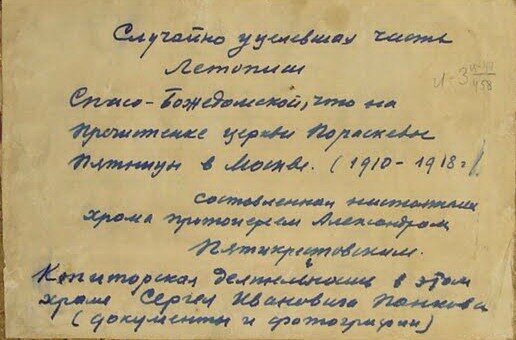 Случайно уцелевшая часть
Летописи
Спасо-Божедомской, что на
Пречистенке церкви Параскевы
Пятницы в Москве. (1910-1918г.)
составленная настоятелем
храма протоиереем Александром
Пятикрестовским.
Ктиторская деятельность в этом
храме Сергея Ивановича Панкова
(документы и фотографии)